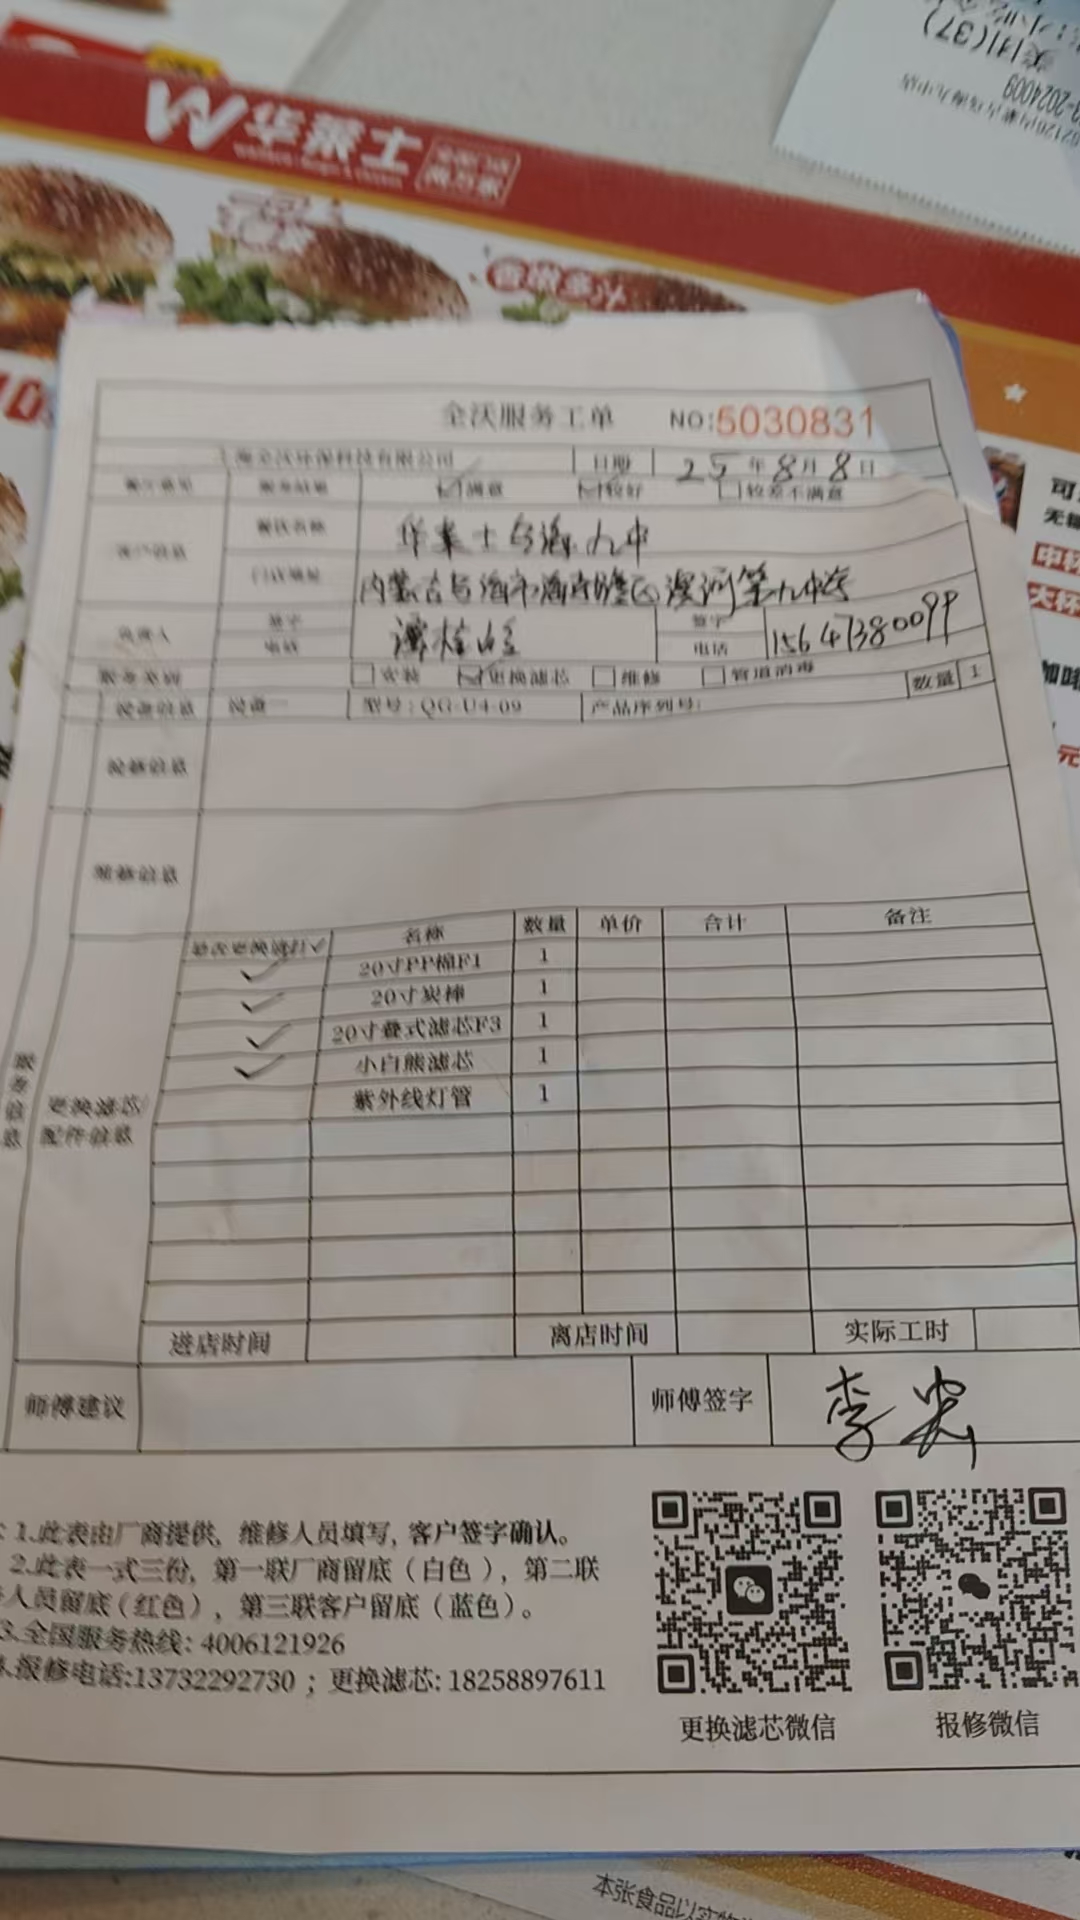 华莱士
美团(37)
全沃服务工单 NO:5030831
上海全沃环保科技有限公司 日期 25年8月8日
服务质量 满意 较好 较差不满意
客户信息 餐饮名称 华莱士乌海九中
门店地址 内蒙古乌海市海南区滨河第九中学
负责人 签字 签字
电话 电话 15647380099
服务类别 安装 更换滤芯 维修 管道消毒 数量 1
设备信息 设备一 型号:QG-U4-09 产品序列号:
维修信息
服务信息
更换滤芯/配件信息
名称 数量 单价 合计 备注
✓ 20寸PP棉F1 1
✓ 20寸炭棒 1
✓ 20寸叠式滤芯F3 1
✓ 小白熊滤芯 1
紫外线灯管 1
进店时间 离店时间 实际工时
师傅建议 师傅签字 李
1.此表由厂商提供, 维修人员填写, 客户签字确认。
2.此表一式三份, 第一联厂商留底(白色), 第二联
人员留底(红色), 第三联客户留底(蓝色)。
3.全国服务热线: 4006121926
4.报修电话:13732292730 ; 更换滤芯: 18258897611
更换滤芯微信 报修微信
本张食品以实物